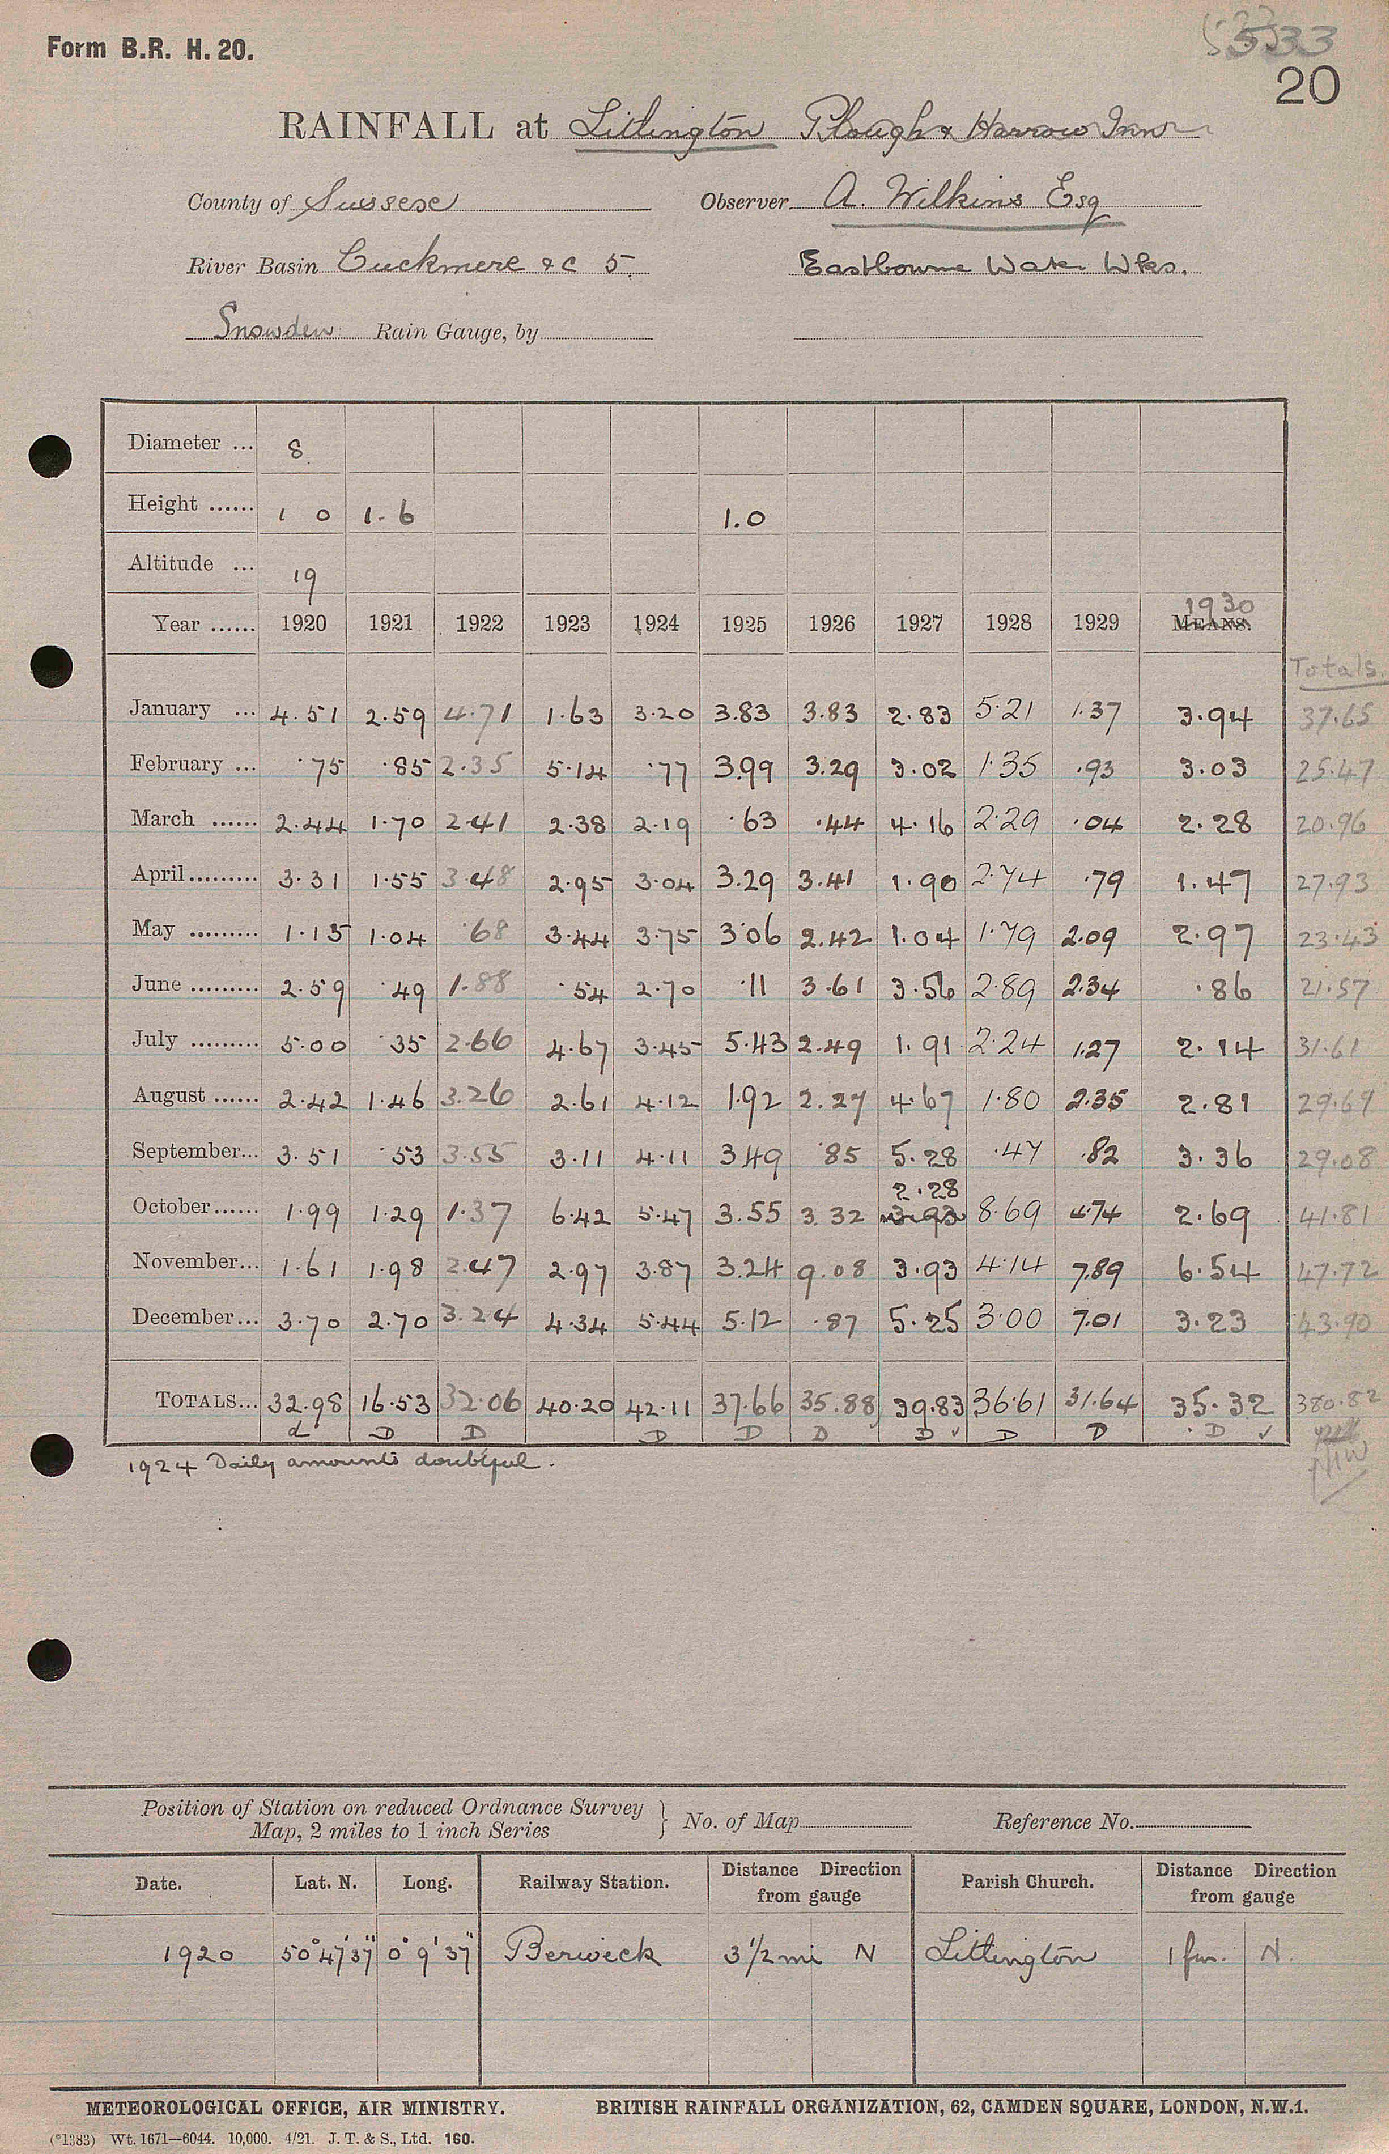 Form B.R. H. 20.
5533
20
RAINFALL at Litlington Plough & Harrow Inn
County of Sussex Observer A. Wilkins Esq
River Basin Cuckmere &c 5. Eastbourne Water Wks.
Snowden Rain Gauge, by
Diameter ... 8
Height ...... 1 0 1.6 1.0
Altitude ... 19
1930
Year ...... 1920 1921 1922 1923 1924 1925 1926 1927 1928 1929 MEANS.
Totals.
January ... 4.51 2.59 4.71 1.63 3.20 3.83 3.83 2.83 5.21 1.37 3.94 37.65
February ... .75 .85 2.35 5.14 .77 3.99 3.29 3.02 1.35 .93 3.03 25.47
March ...... 2.44 1.70 2.41 2.38 2.19 .63 .44 4.16 2.29 .04 2.28 20.96
April ......... 3.31 1.55 3.48 2.95 3.04 3.29 3.41 1.90 2.74 .79 1.47 27.93
May ......... 1.15 1.04 .68 3.44 3.75 3.06 2.42 1.04 1.79 2.09 2.97 23.43
June ......... 2.59 .49 1.88 .54 2.70 .11 3.61 3.56 2.89 2.34 .86 21.57
July ......... 5.00 .35 2.66 4.67 3.45 5.43 2.49 1.91 2.24 1.27 2.14 31.61
August ...... 2.42 1.46 3.26 2.61 4.12 1.92 2.27 4.67 1.80 2.35 2.81 29.69
September... 3.51 .53 3.55 3.11 4.11 3.49 .85 5.28 .47 .82 3.36 29.08
2.28
October...... 1.99 1.29 1.37 6.42 5.47 3.55 3.32 3.93 8.69 4.74 2.69 41.81
November... 1.61 1.98 2.47 2.97 3.87 3.24 9.08 3.93 4.14 7.89 6.54 47.72
December... 3.70 2.70 3.24 4.34 5.44 5.12 .87 5.25 3.00 7.01 3.23 43.90
TOTALS... 32.98 16.53 32.06 40.20 42.11 37.66 35.88 39.83 36.61 31.64 35.32 380.82
d D D D D D D ✓ D D D ✓
1924 Daily amounts doubtful.
Position of Station on reduced Ordnance Survey } No. of Map Reference No.
Map, 2 miles to 1 inch Series
Date. Lat. N. Long. Railway Station. Distance Direction from gauge Parish Church. Distance Direction from gauge
1920 50° 47' 37" 0° 9' 37" Berwick 3 1/2 mi N Litlington 1 fur. N.
METEOROLOGICAL OFFICE, AIR MINISTRY. BRITISH RAINFALL ORGANIZATION, 62, CAMDEN SQUARE, LONDON, N.W.1.
(*1383) Wt. 1671—6044. 10,000. 4/21. J. T. & S., Ltd. 160.